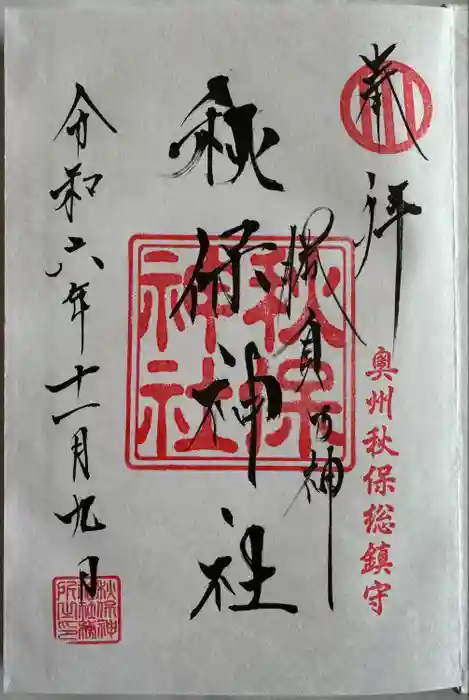 奉拝
奥州秋保総鎮守
勝負の神
秋保神社
秋保
神社
令和六年十一月九日
秋保神
社社務
所之印